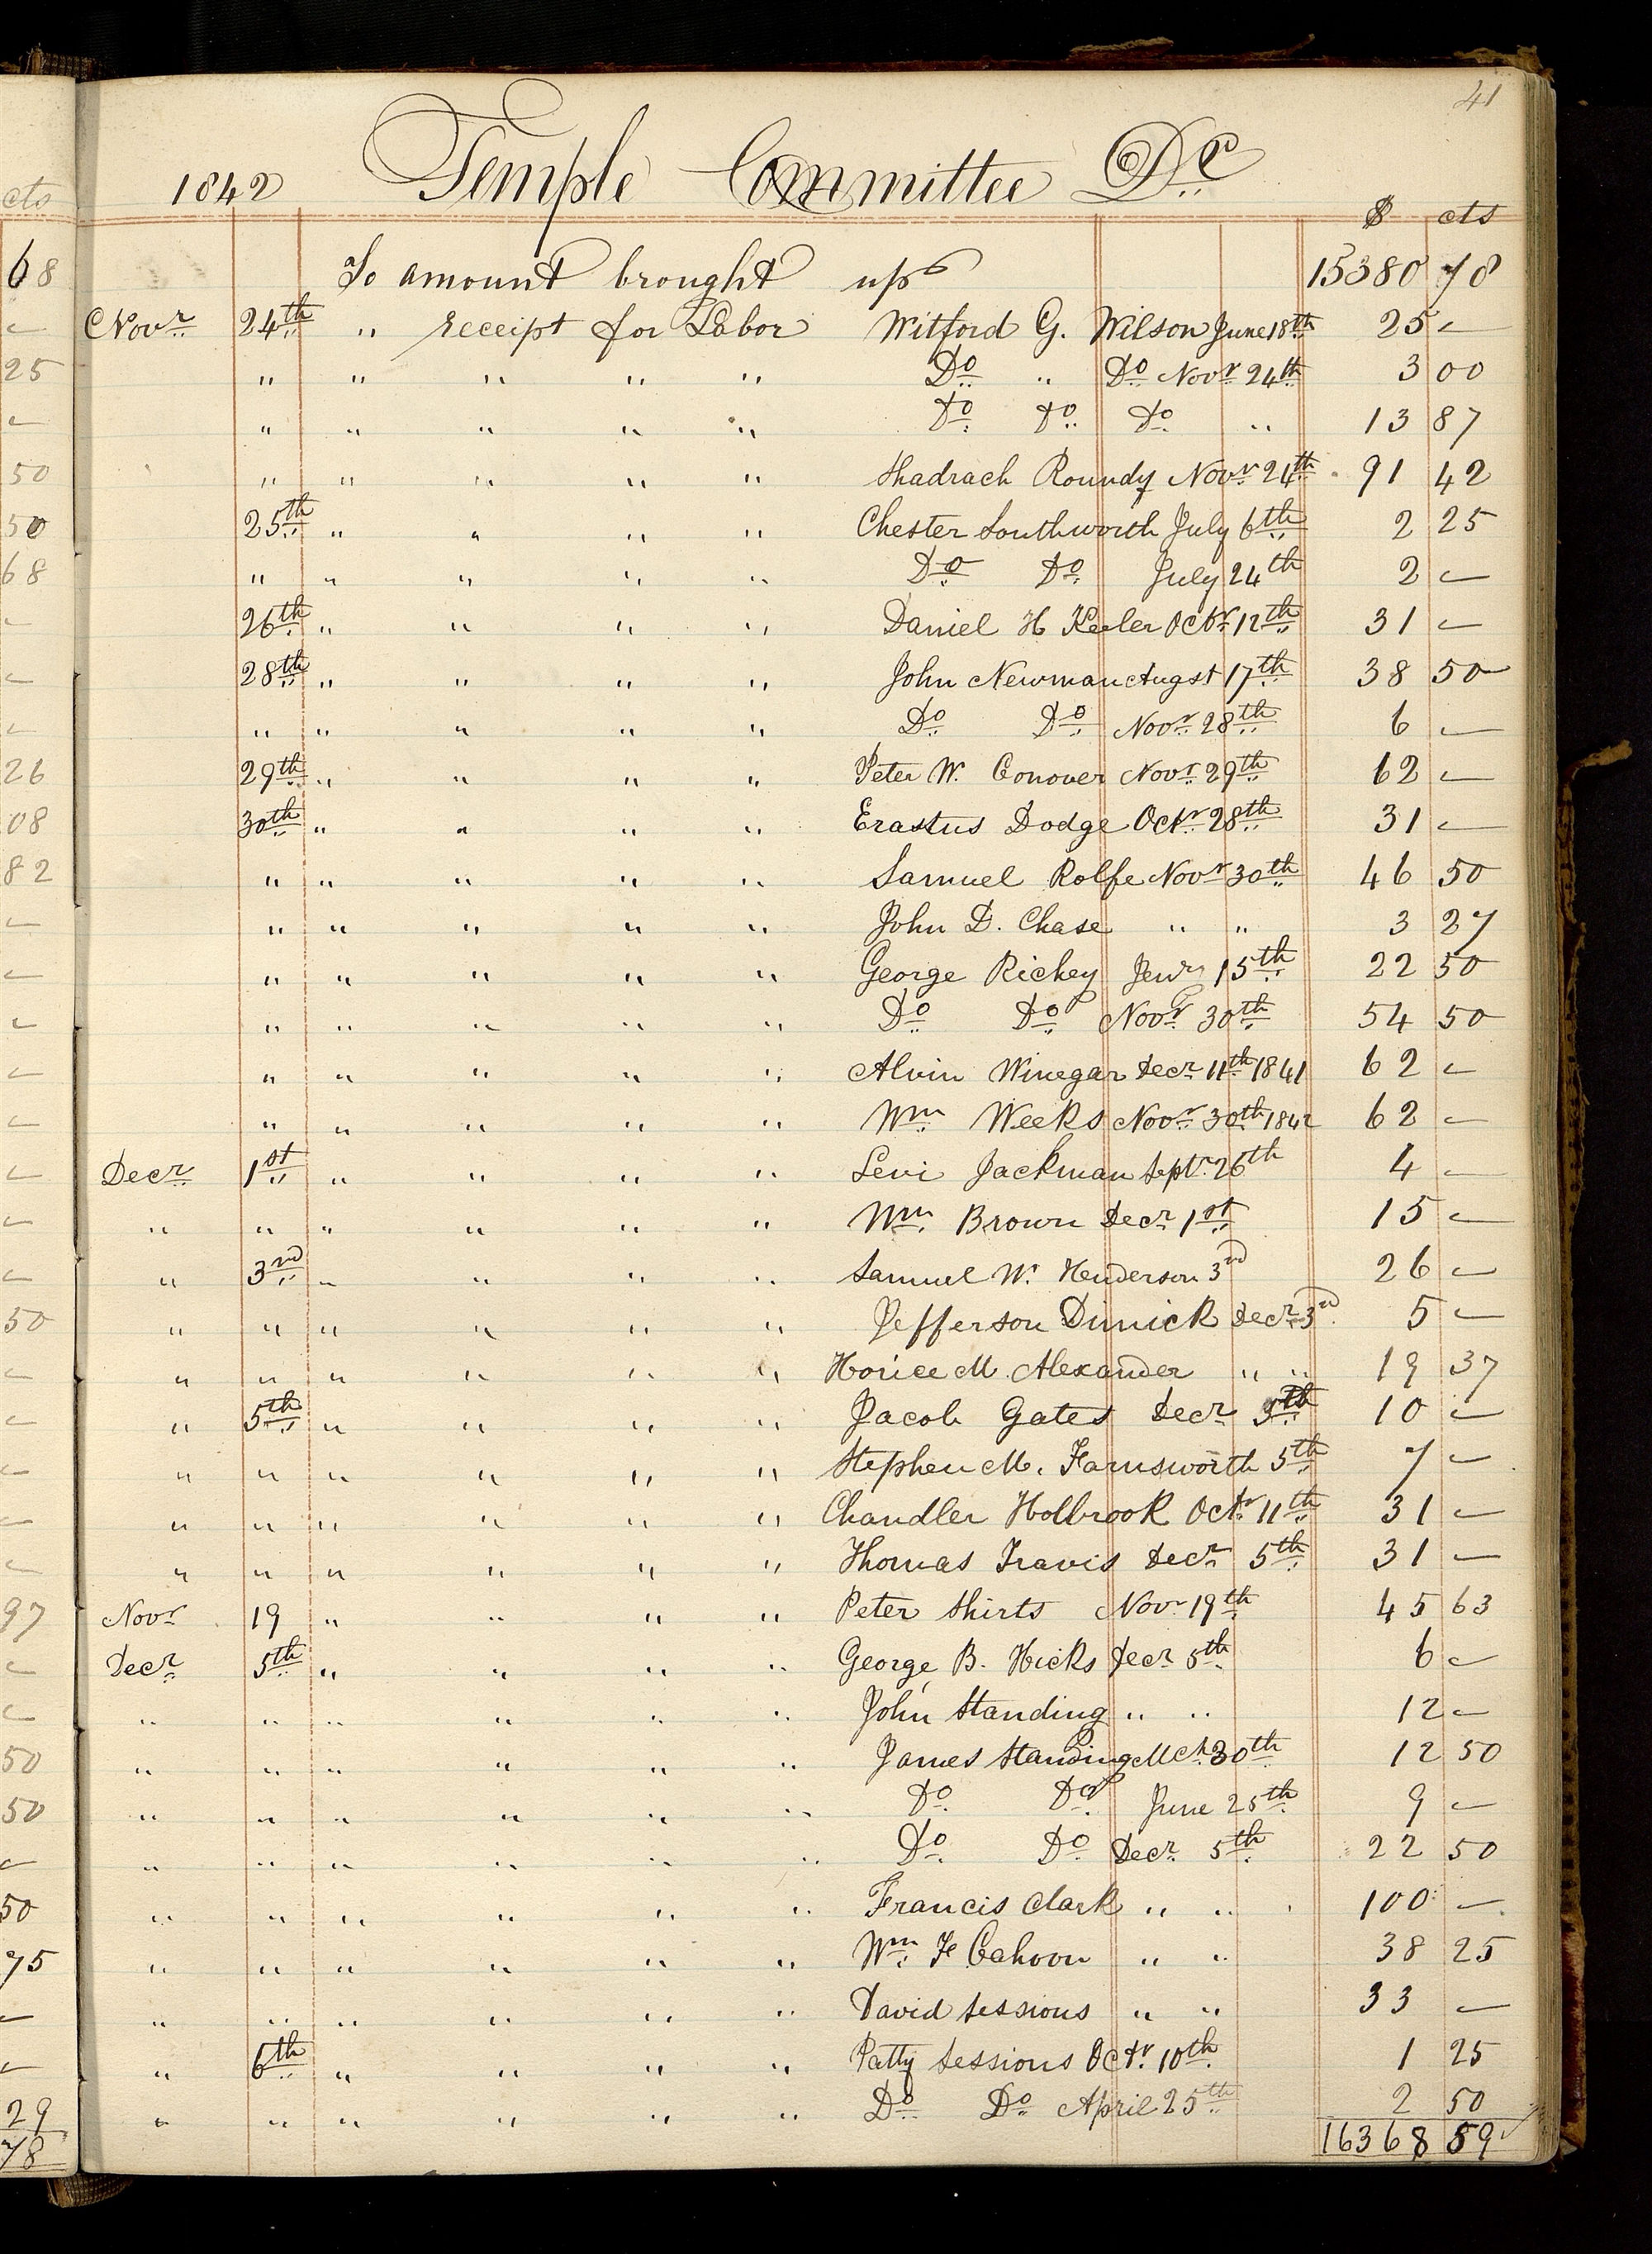 41
1842 Temple Committee Dr
$ cts
To amount brought up 15380 78
Novr 24th " receipt for Labor Witford G. Wilson June 18th 25 —
" " " " " Do " Do Novr 24th 3 00
" " " " " Do Do Do " 13 87
" " " " " Shadrach Roundy Novr 24th 91 42
25th " " " " Chester Southworth July 6th 2 25
" " " " " Do Do July 24th 2 —
26th " " " " Daniel H Keeler Octr 12th 31 —
28th " " " " John Newman Augst 17th 38 50
" " " " " Do Do Novr 28th 6 —
29th " " " " Peter W. Conover Novr 29th 62 —
30th " " " " Erastus Dodge Octr 28th 31 —
" " " " " Samuel Rolfe Novr 30th 46 50
" " " " " John D. Chase " " 3 27
" " " " " George Richey 15th 22 50
" " " " " Do Do Novr 30th 54 50
" " " " " Alvin Winegar Decr 11th 1841 62 —
" " " " " Wm Weeks Novr 30th 1842 62 —
Decr 1st " " " " Levi Jackman Septr 26th 4 —
" " " " " " Wm Brown Decr 1st 15 —
" 3rd " " " " Samuel W. Henderson 3rd 26 —
" " " " " " Jefferson Dimick Decr 3rd 5 —
" " " " " " Horice M. Alexander " " 19 37
" 5th " " " " Jacob Gates Decr 5th 10 —
" " " " " " Stephen M. Farnsworth 5th 7 —
" " " " " " Chandler Holbrook Octr 11th 31 —
" " " " " " Thomas Travis Decr 5th 31 —
Novr 19 " " " " Peter Shirts Novr 19th 45 63
Decr 5th " " " " George B. Hicks Decr 5th 6 —
" " " " " " John Standing " " 12 —
" " " " " " James Standing Mch 30th 12 50
" " " " " " Do Do June 25th 9 —
" " " " " " Do Do Decr 5th 22 50
" " " " " " Francis Clark " " 100 —
" " " " " " Wm F Cahoon " " 38 25
" " " " " " David Sessions " " 33 —
" 6th " " " " Patty Sessions Octr 10th 1 25
" " " " " " Do Do April 25th 2 50
16368 59
cts
68
—
25
—
50
50
68
—
—
—
26
08
82
—
—
—
—
—
—
—
—
50
—
—
—
—
—
97
—
—
50
50
—
50
75
—
—
29
78